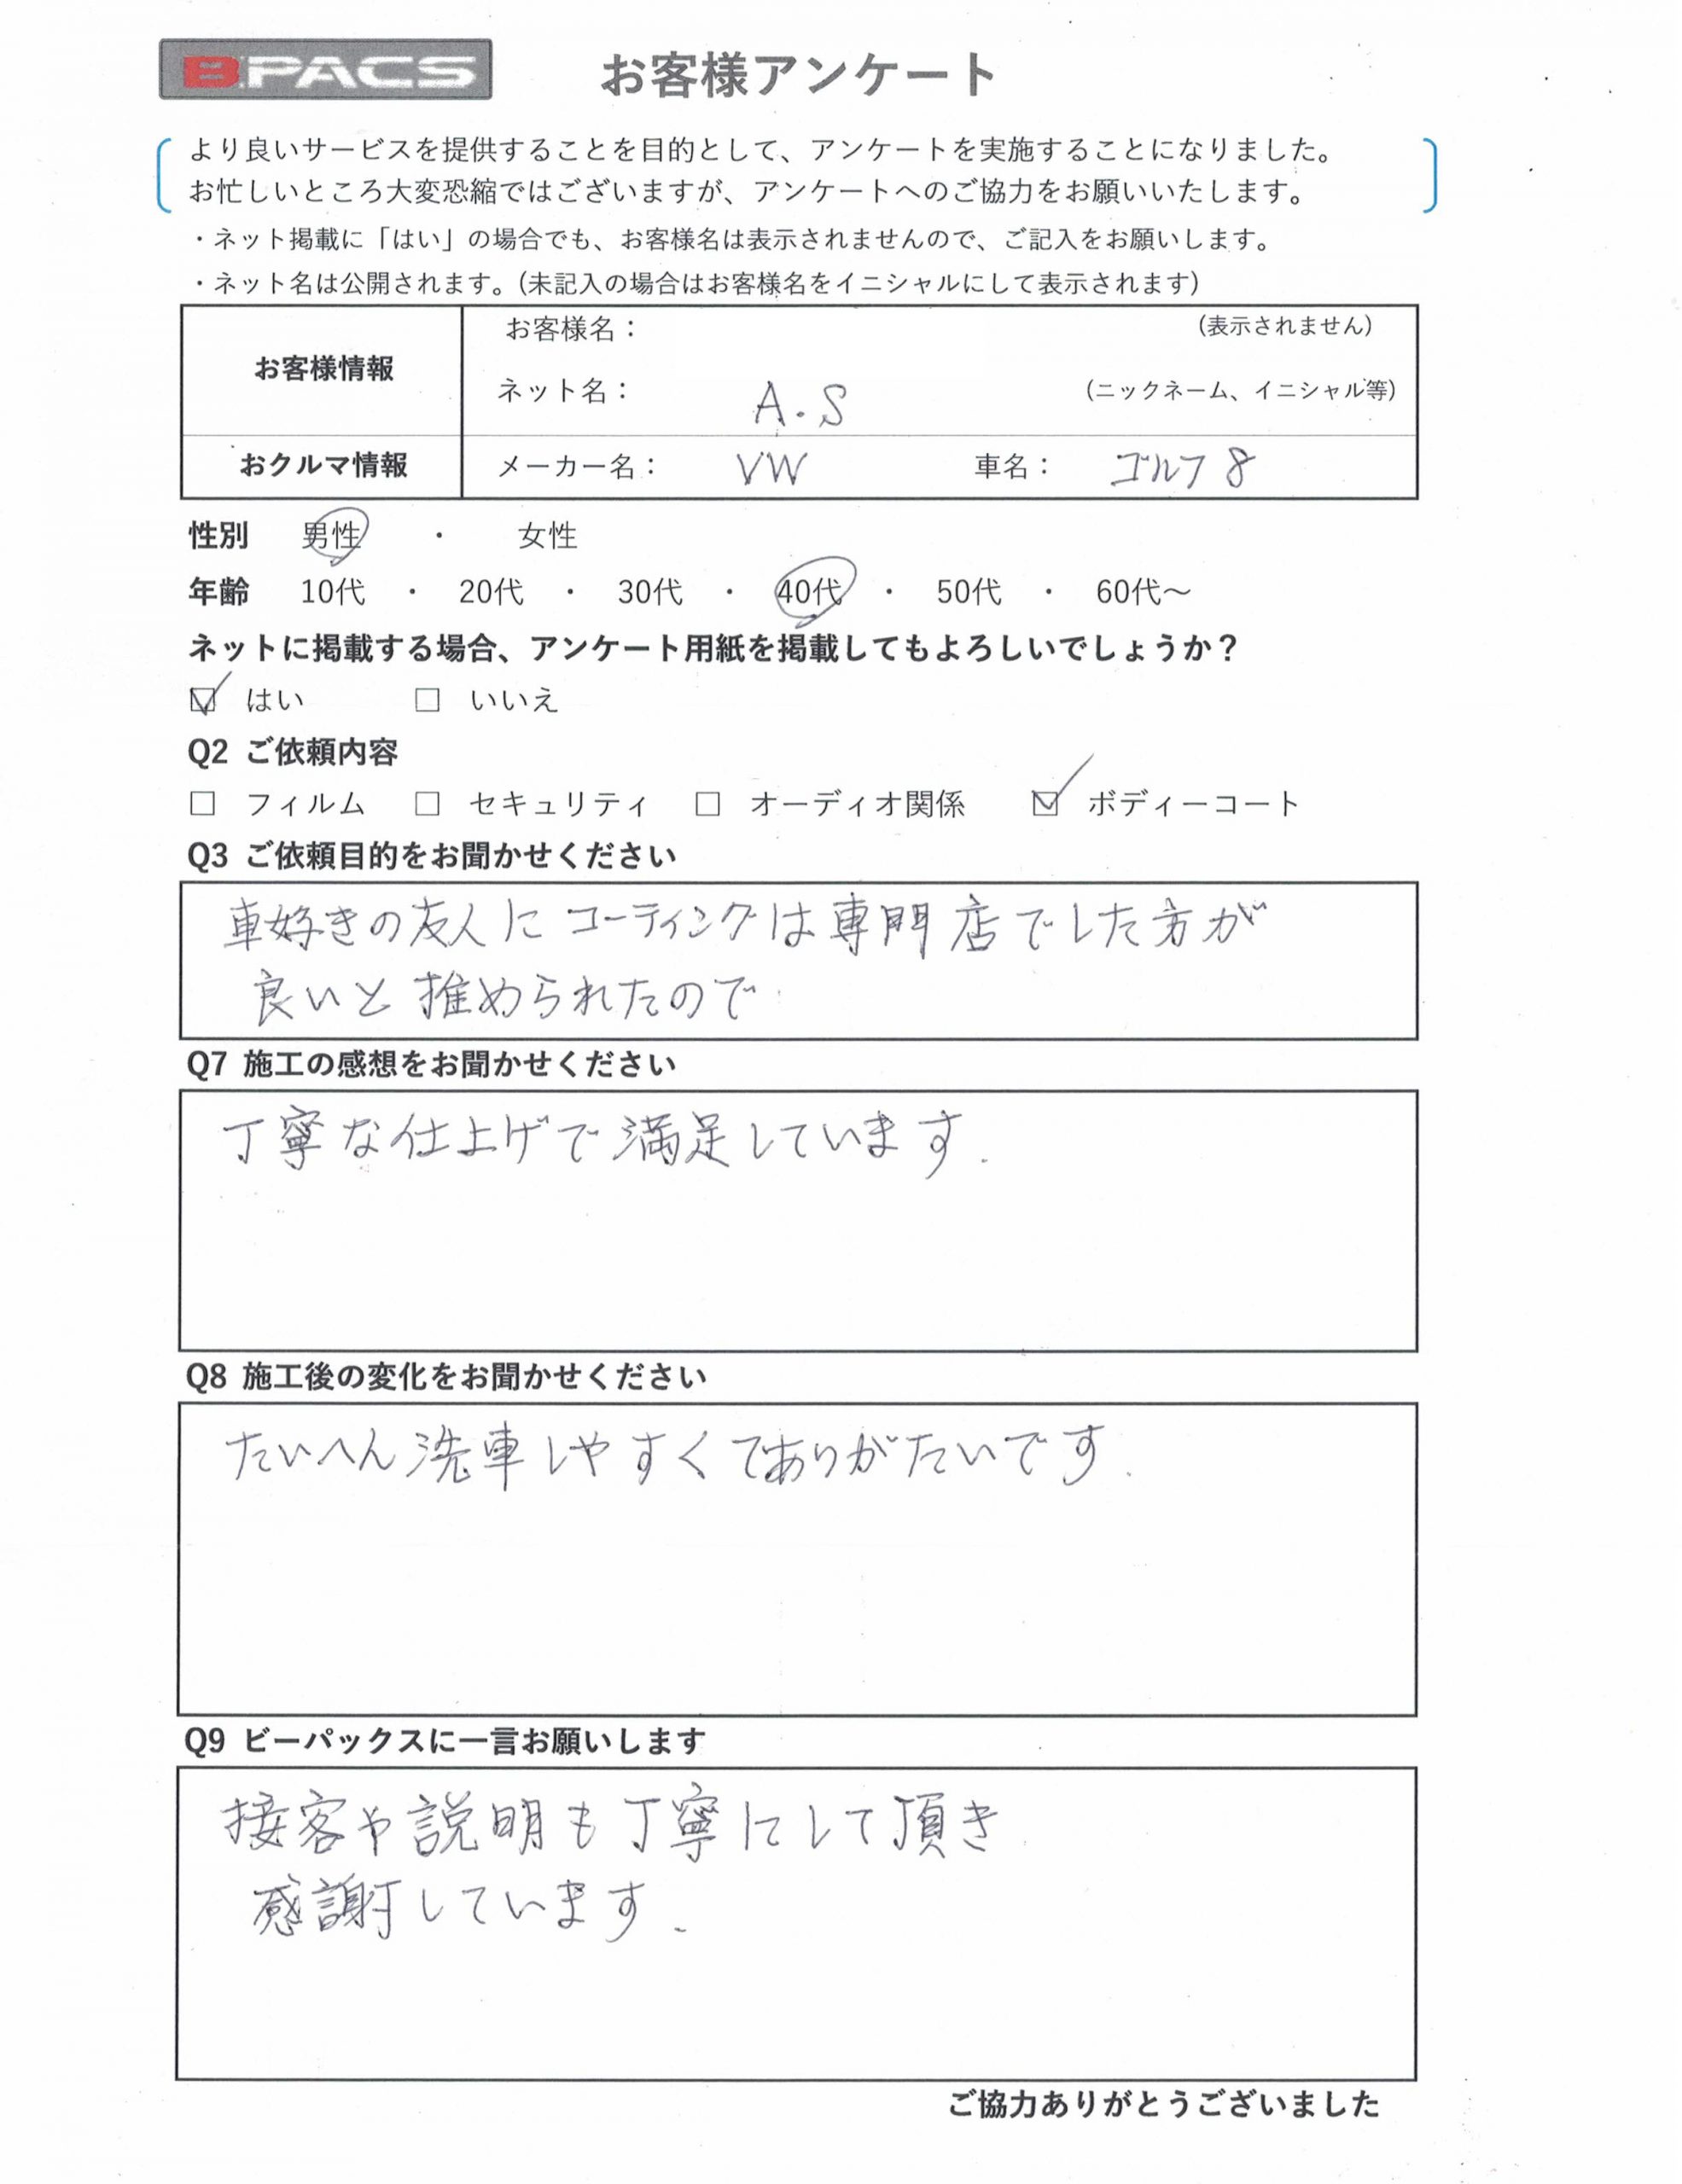 B.PACS お客様アンケート
より良いサービスを提供することを目的として、アンケートを実施することになりました。
お忙しいところ大変恐縮ではございますが、アンケートへのご協力をお願いいたします。
・ネット掲載に「はい」の場合でも、お客様名は表示されませんので、ご記入をお願いします。
・ネット名は公開されます。(未記入の場合はお客様名をイニシャルにして表示されます)
お客様情報
お客様名： (表示されません)
ネット名： A.S (ニックネーム、イニシャル等)
おクルマ情報 メーカー名： VW 車名： ゴルフ8
性別 男性 ・ 女性
年齢 10代 ・ 20代 ・ 30代 ・ 40代 ・ 50代 ・ 60代～
ネットに掲載する場合、アンケート用紙を掲載してもよろしいでしょうか？
☑ はい □ いいえ
Q2 ご依頼内容
□ フィルム □ セキュリティ □ オーディオ関係 ☑ ボディーコート
Q3 ご依頼目的をお聞かせください
車好きの友人にコーティングは専門店でした方が
良いと推められたので
Q7 施工の感想をお聞かせください
丁寧な仕上げで満足しています.
Q8 施工後の変化をお聞かせください
たいへん洗車しやすくてありがたいです.
Q9 ビーパックスに一言お願いします
接客や説明も丁寧にして頂き
感謝しています.
ご協力ありがとうございました